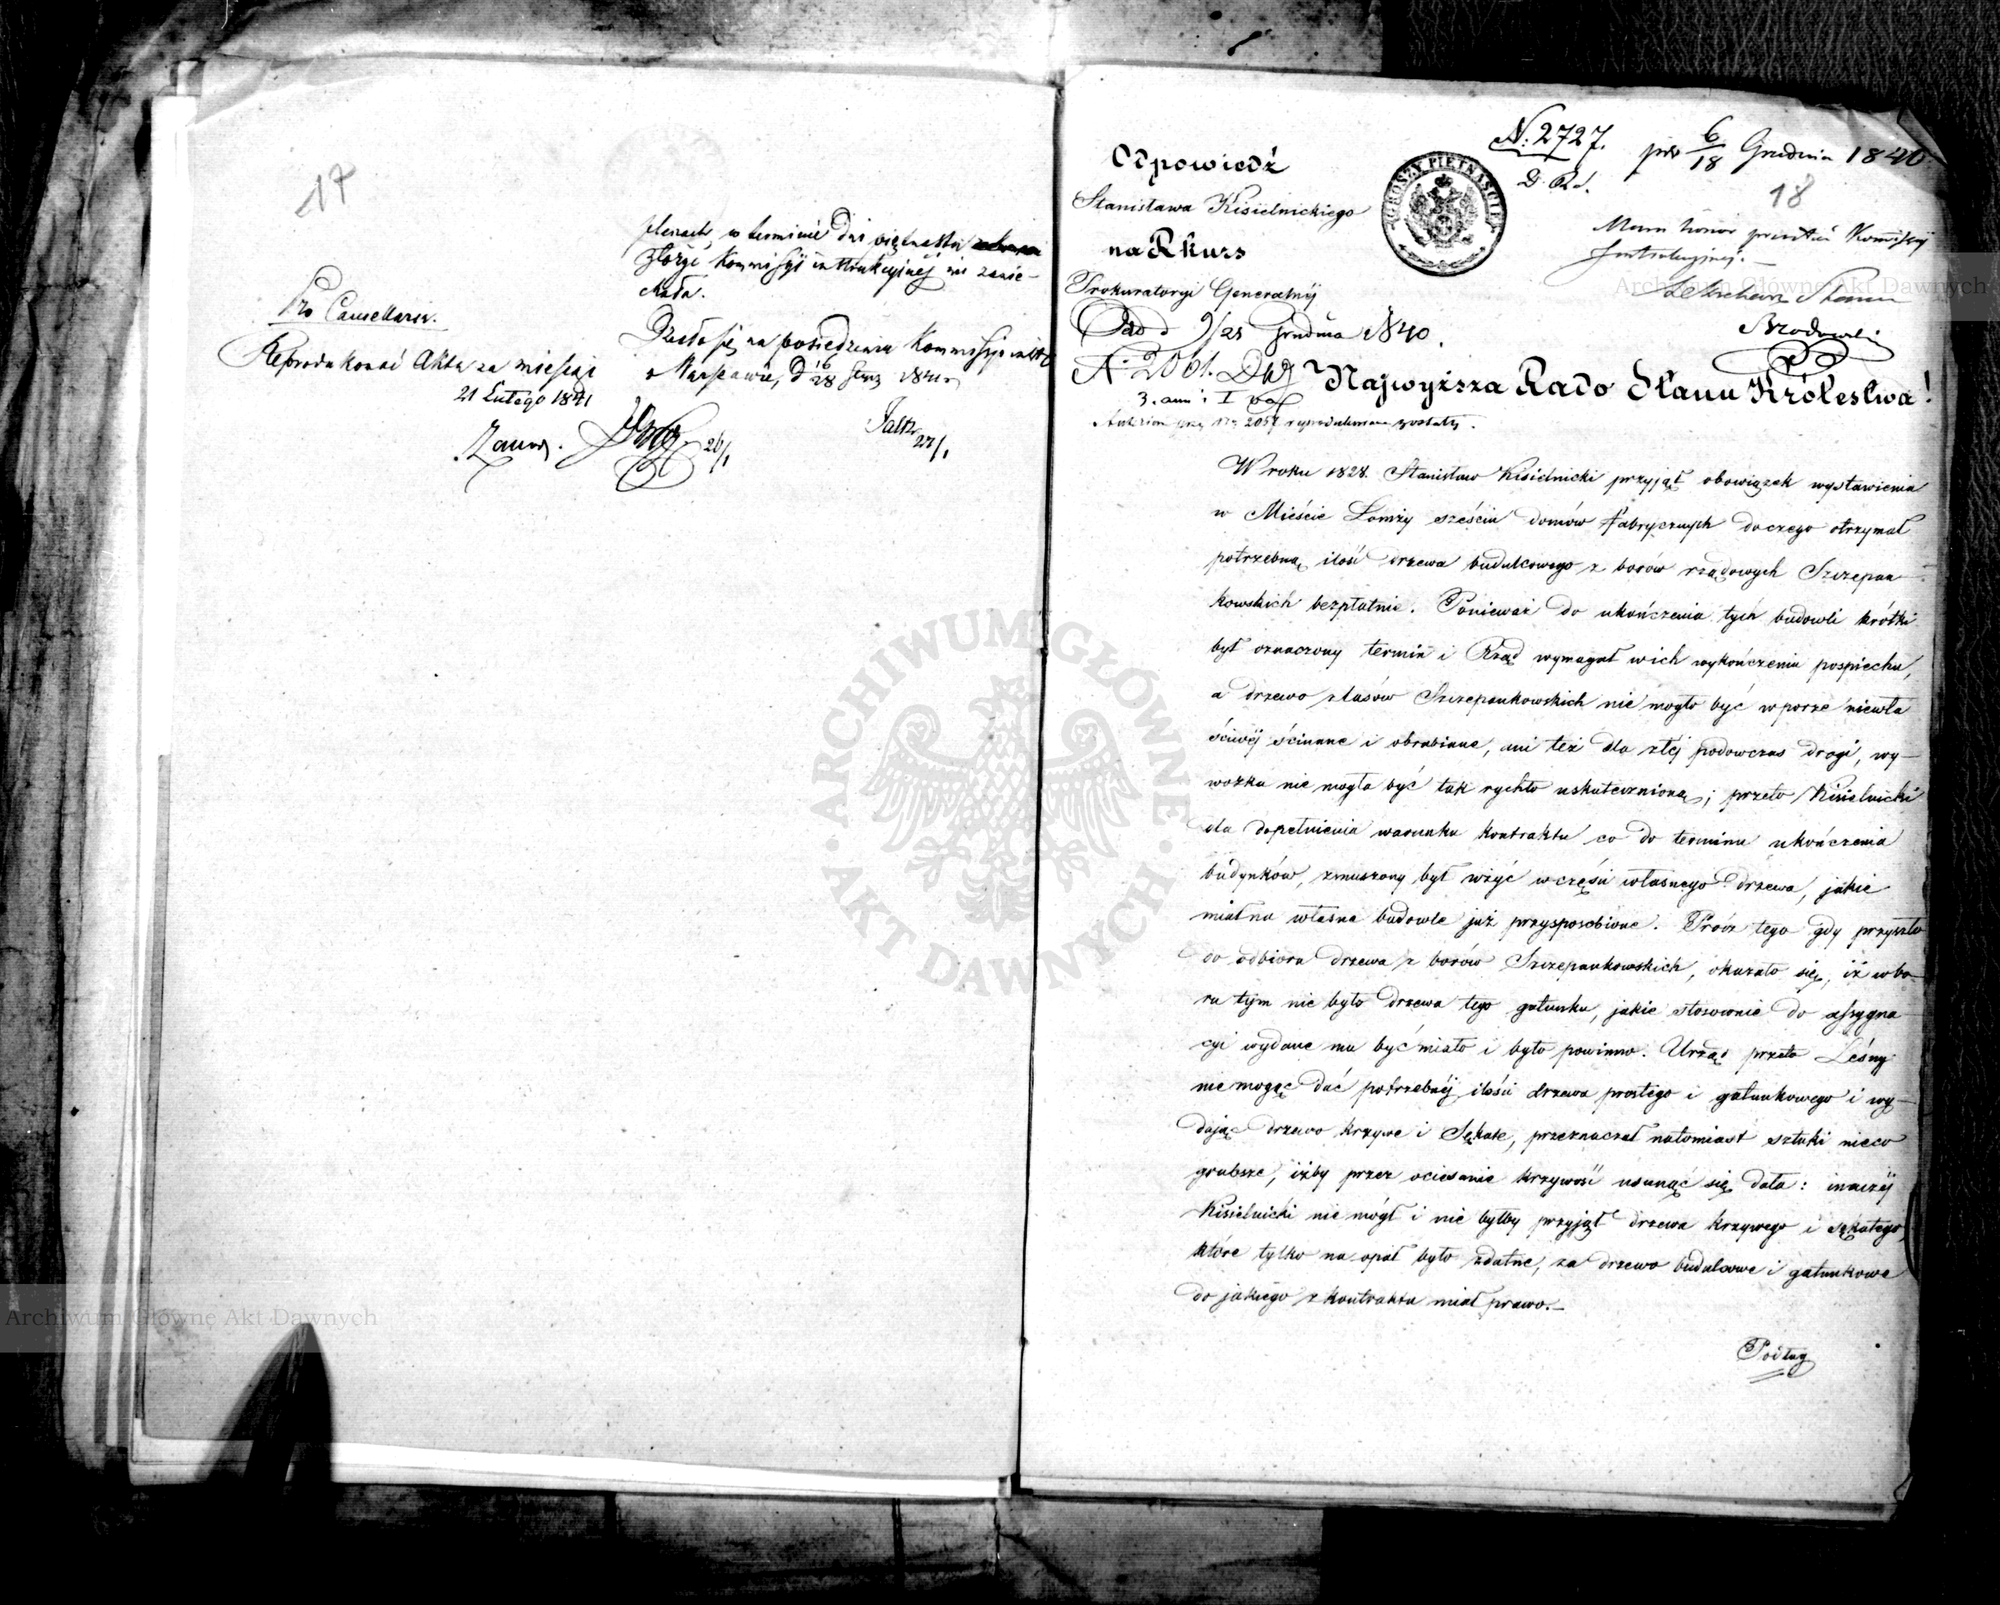 17
w terminie Dni piętnastu
złożyć Kommissyi instrukcyjnej nie zanie-
chała.
Działo się na posiedzeniu Kommissyi
w Warszawie, d 16/28 1841 r
Pro Cancellaria.
Reprodukować Akta za miesiąc
21 Lutego 1841
26/1
27/1
N: 2727.
D. R. S.
prs 6/18 Grudnia 1840
18
Odpowiedź
Stanisława Kisielnickiego
na Rkurs
Prokuratoryi Generalnéj
Dto d 9/21 Grudnia 1840.
N: 2061.
GROSZY PIETNAŚCIE
Mam honor Komissyi
Instrukcyjnej.
Brodowski
Najwyższa Rado Stanu Królestwa!
W roku 1828. Stanisław Kisielnicki przyjął obowiązek wystawienia
w Mieście Łomży sześciu domów fabrycznych do czego otrzymał
potrzebną ilość drzewa budulcowego z borów rządowych Szczepan-
kowskich bezpłatnie. Ponieważ do ukończenia tych budowli krótki
był oznaczony termin i Rząd wymagał w ich wykończeniu pospiechu,
a drzewo z lasów Szczepankowskich nie mogło być w porze niewła
ściwéj ścinane i obrabiane, ani też dla złéj podowczas drogi, wy-
wózka nie mogła być tak rychło uskutecznioną; przeto Kisielnicki
dla dopełnienia warunku kontraktu co do terminu ukończenia
budynków, zmuszony był użyć w części własnego drzewa, jakie
miał na własne budowle już przysposobione. Prócz tego gdy przyszło
do odbioru drzewa z borów Szczepankowskich, okazało się, iż w bo-
ru tym nie było drzewa tego gatunku, jakie stosownie do assygna
cyi wydane mu być miało i było powinno. Urząd przeto Leśny
nie mogąc dać potrzebnéj ilości drzewa prostego i gatunkowego i wy-
dając drzewo krzywe i sękate, przeznaczał natomiast sztuki nieco
grubsze, iżby przez ociesanie krzywość usunąć się dała: inaczéj
Kisielnicki nie mógł i nie byłby przyjął drzewa krzywego i sękatego,
które tylko na opał było zdatne, za drzewo budulcowe i gatunkowe
do jakiego z kontraktu miał prawo.—
Podług
ARCHIWUM GŁÓWNE AKT DAWNYCH
Archiwum Główne Akt Dawnych
Archiwum Główne Akt Dawnych